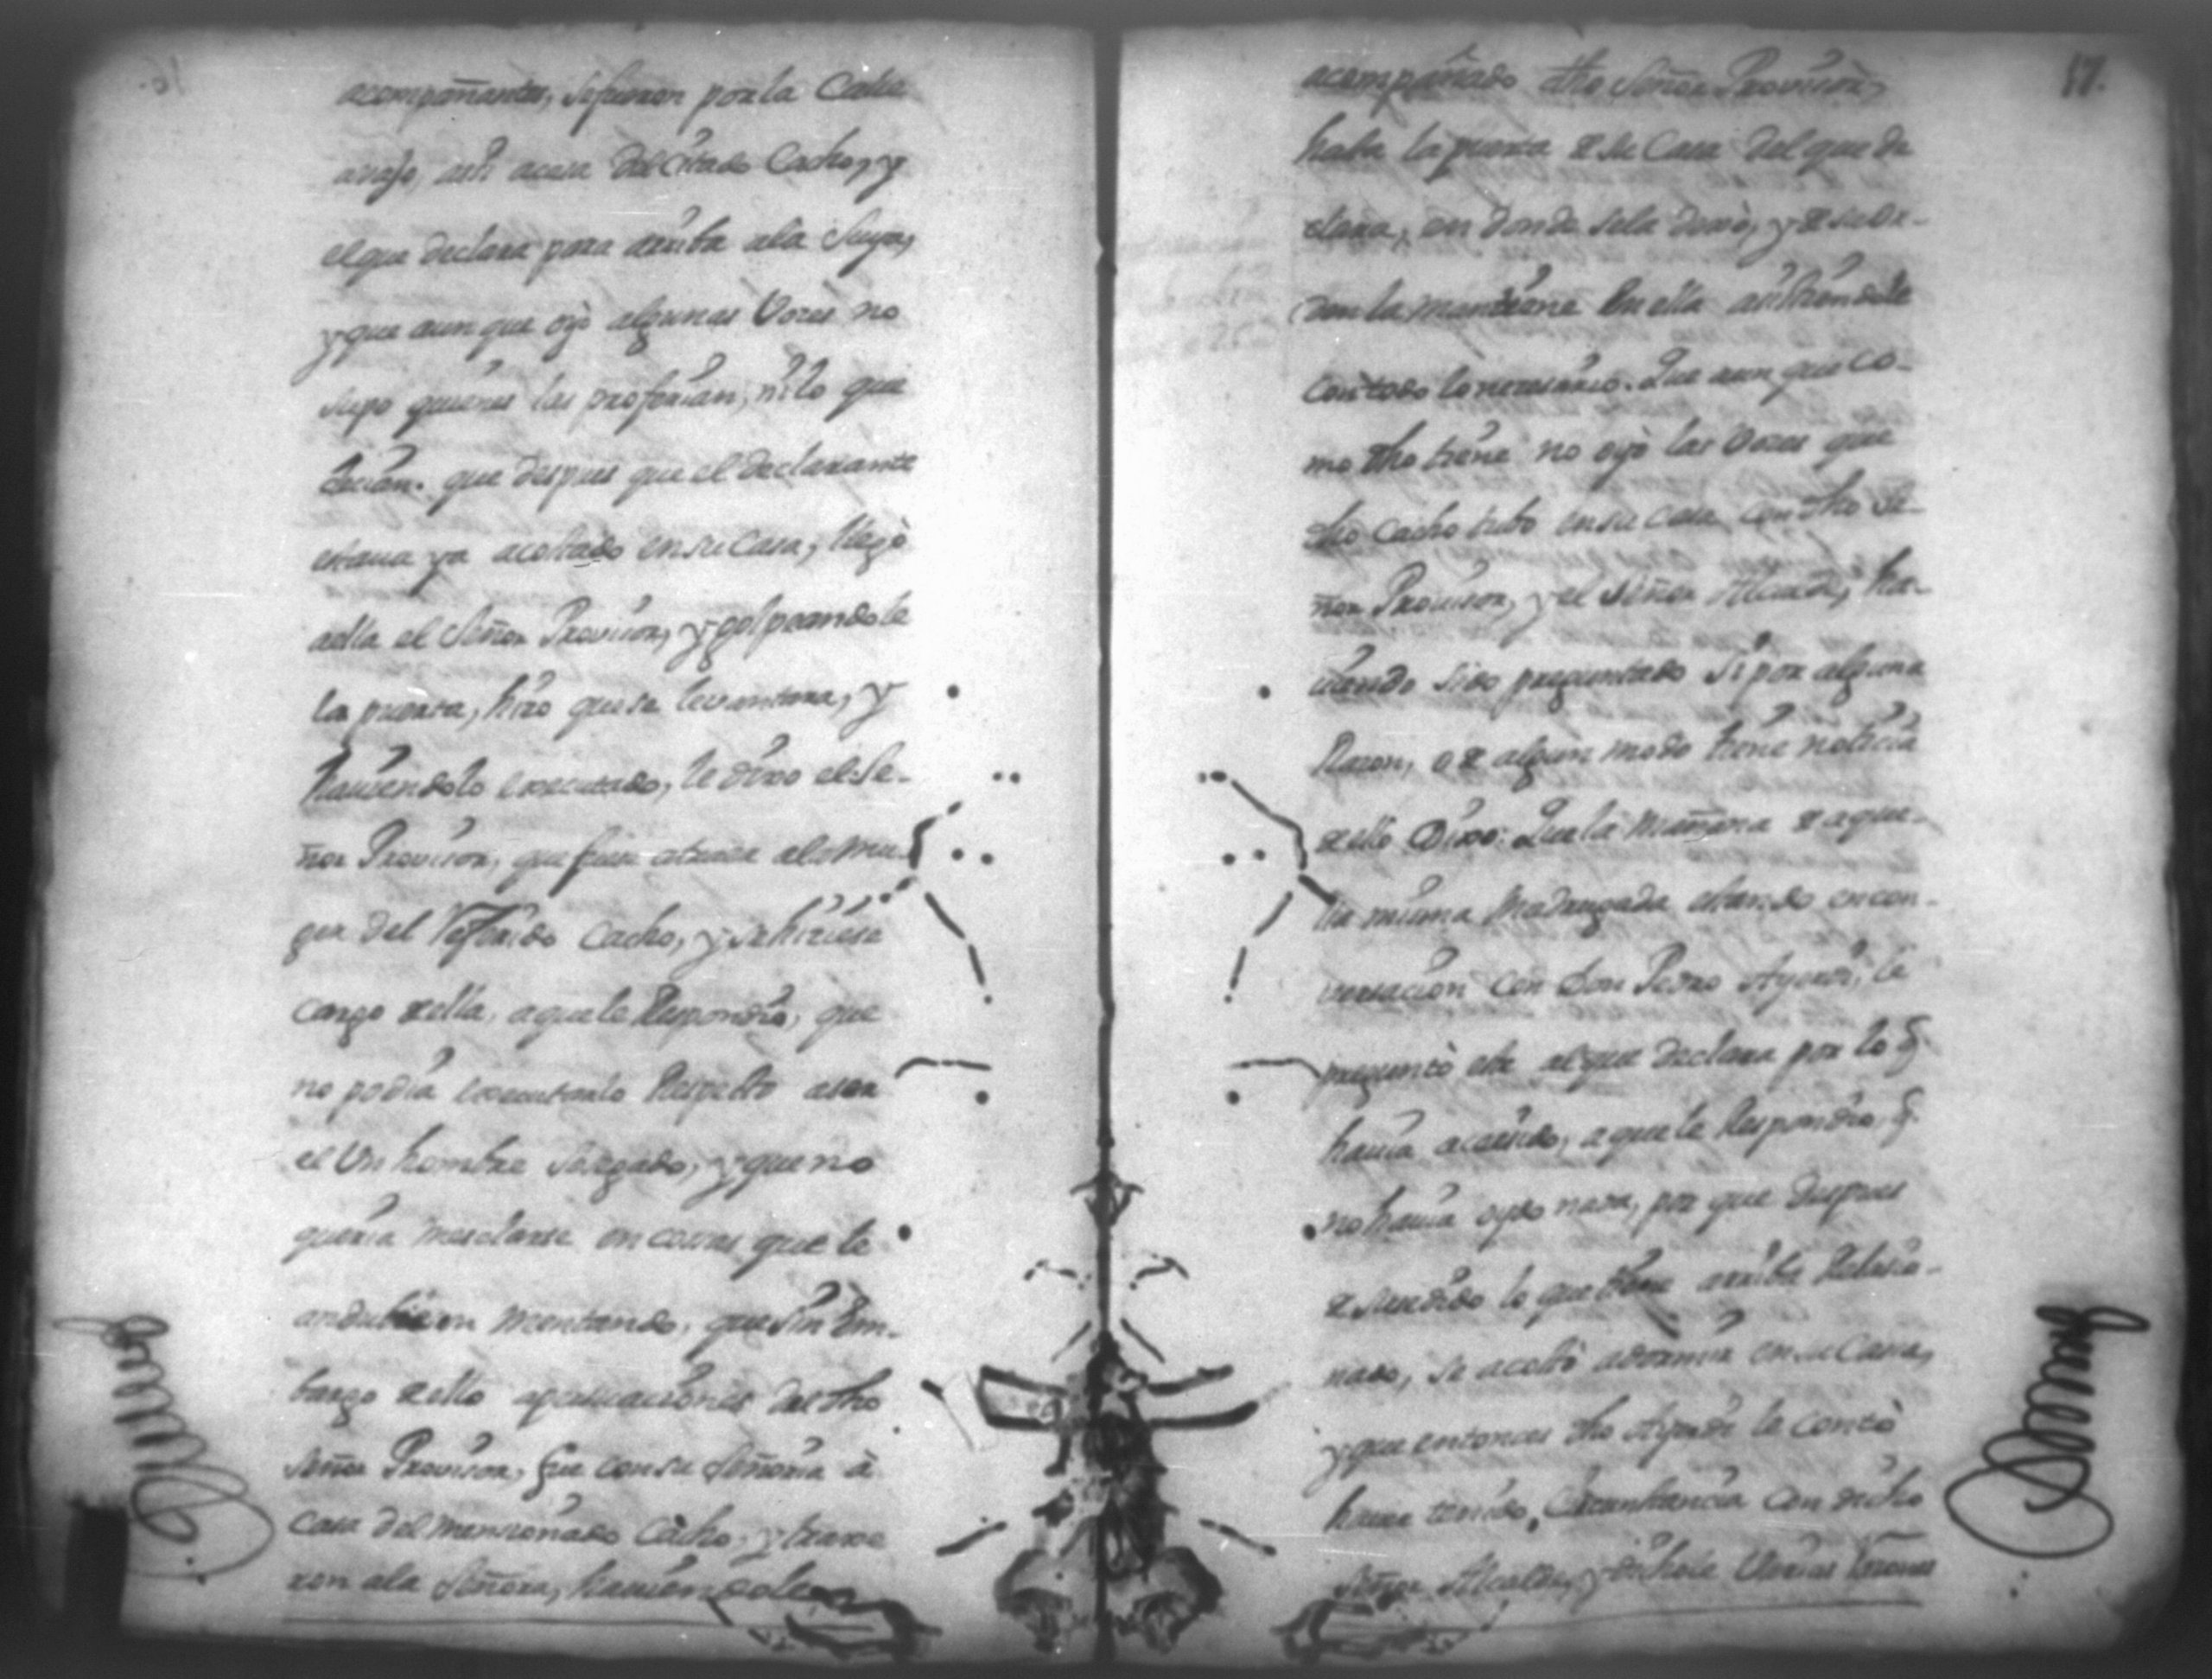 acompañantes, se fueron por la Calle
avajo, asi a casa del citado Cacho, y
el que declara para arriba a la suya,
y que aunque oyò algunas Vozes no
supo quienes las proferian, ni lo que
decian. que despues que el declarante
estava ya acostado en su casa, llegò
a ella el Señor Provisor, y golpeandole
la puerta, hizo que se levantara, y
haviendolo executado, le dixo el Se-
ñor Provisor, que fuese a traer a la Mu-
ger del Referido Cacho, y se hiciese
cargo de ella, a que le Respondio, que
no podia executarlo Respecto a ser
el Un hombre Cargado, y que no
queria mesclarse en cosas que le
andubiesen mentando, que sin Em-
bargo de ello a persuaciones del dho
Señor Provisor, fue con su Señoria à
casa del mencionado Cacho, y traxe
ron a la Señora, haviendola
17.
acompañado dho Señor Provisor,
hasta la puerta de su Casa del que de
clara, en donde se la dexò, y de su or-
den la mantiene en ella asistiendole
con todo lo necesario. Que aunque co-
mo dho tiene no oyò las Vozes que
dho Cacho tubo en su casa con dho Se-
ñor Provisor, y el Señor Alcalde, ha-
viendo sido preguntado si por alguna
Razon, o de algun modo tiene noticia
de ello Dixo: Que la mañana de aque-
lla misma Madrugada estando en con-
versacion con Don Pedro
preguntò este al que declara por lo q.
havia acaecido, a que le Respondio, q.
no havia oydo nada, por que despues
de sucedido lo que tiene arriba Relacio-
nado, se acostò a dormir en su Casa,
y que entonces dho le contò
haver tenido Circunstancia con dicho
Señor Alcalde, y dichole Varias